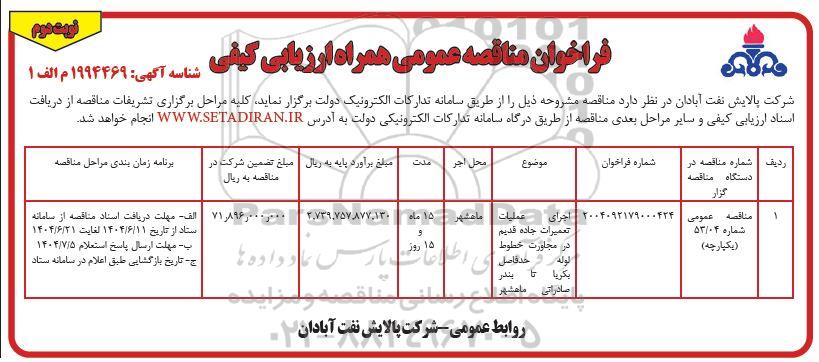 نوبت دوم
فراخوان مناقصه عمومی همراه ارزیابی کیفی
شناسه آگهی: ۱۹۹۴۴۶۹ م الف ۱
شرکت پالایش نفت آبادان در نظر دارد مناقصه مشروحه ذیل را از طریق سامانه تدارکات الکترونیک دولت برگزار نماید، کلیه مراحل برگزاری تشریفات مناقصه از دریافت
اسناد ارزیابی کیفی و سایر مراحل بعدی مناقصه از طریق درگاه سامانه تدارکات الکترونیکی دولت به آدرس WWW.SETADIRAN.IR انجام خواهد شد.
ردیف
شماره مناقصه در
دستگاه مناقصه
گزار
شماره فراخوان
موضوع
محل اجر
مدت
مبلغ برآورد پایه به ریال
مبلغ تضمین شرکت در
مناقصه به ریال
برنامه زمان بندی مراحل مناقصه
۱
مناقصه عمومی
شماره ۵۳/۰۴
(یکپارچه)
۲۰۰۴۰۹۲۱۷۹۰۰۰۴۲۴
اجرای عملیات
تعمیرات جاده قدیم
در مجاورت خطوط
لوله حدفاصل
بکریا تا بندر
صادراتی ماهشهر
ماهشهر
۱۵ ماه
و
۱۵ روز
۲,۷۳۹,۷۵۷,۸۷۷,۱۳۰
۷۱٫۸۹۶٫۰۰۰٫۰۰۰
الف- مهلت دریافت اسناد مناقصه از سامانه
ستاد از تاریخ ۱۴۰۴/۶/۱۱ لغایت ۱۴۰۴/۶/۲۱
ب- مهلت ارسال پاسخ استعلام ۱۴۰۴/۷/۵
ج- تاریخ بازگشایی طبق اعلام در سامانه ستاد
روابط عمومی-شرکت پالایش نفت آبادان
ParsNamadData
پایگاه اطلاع رسانی مناقصه و مزایده